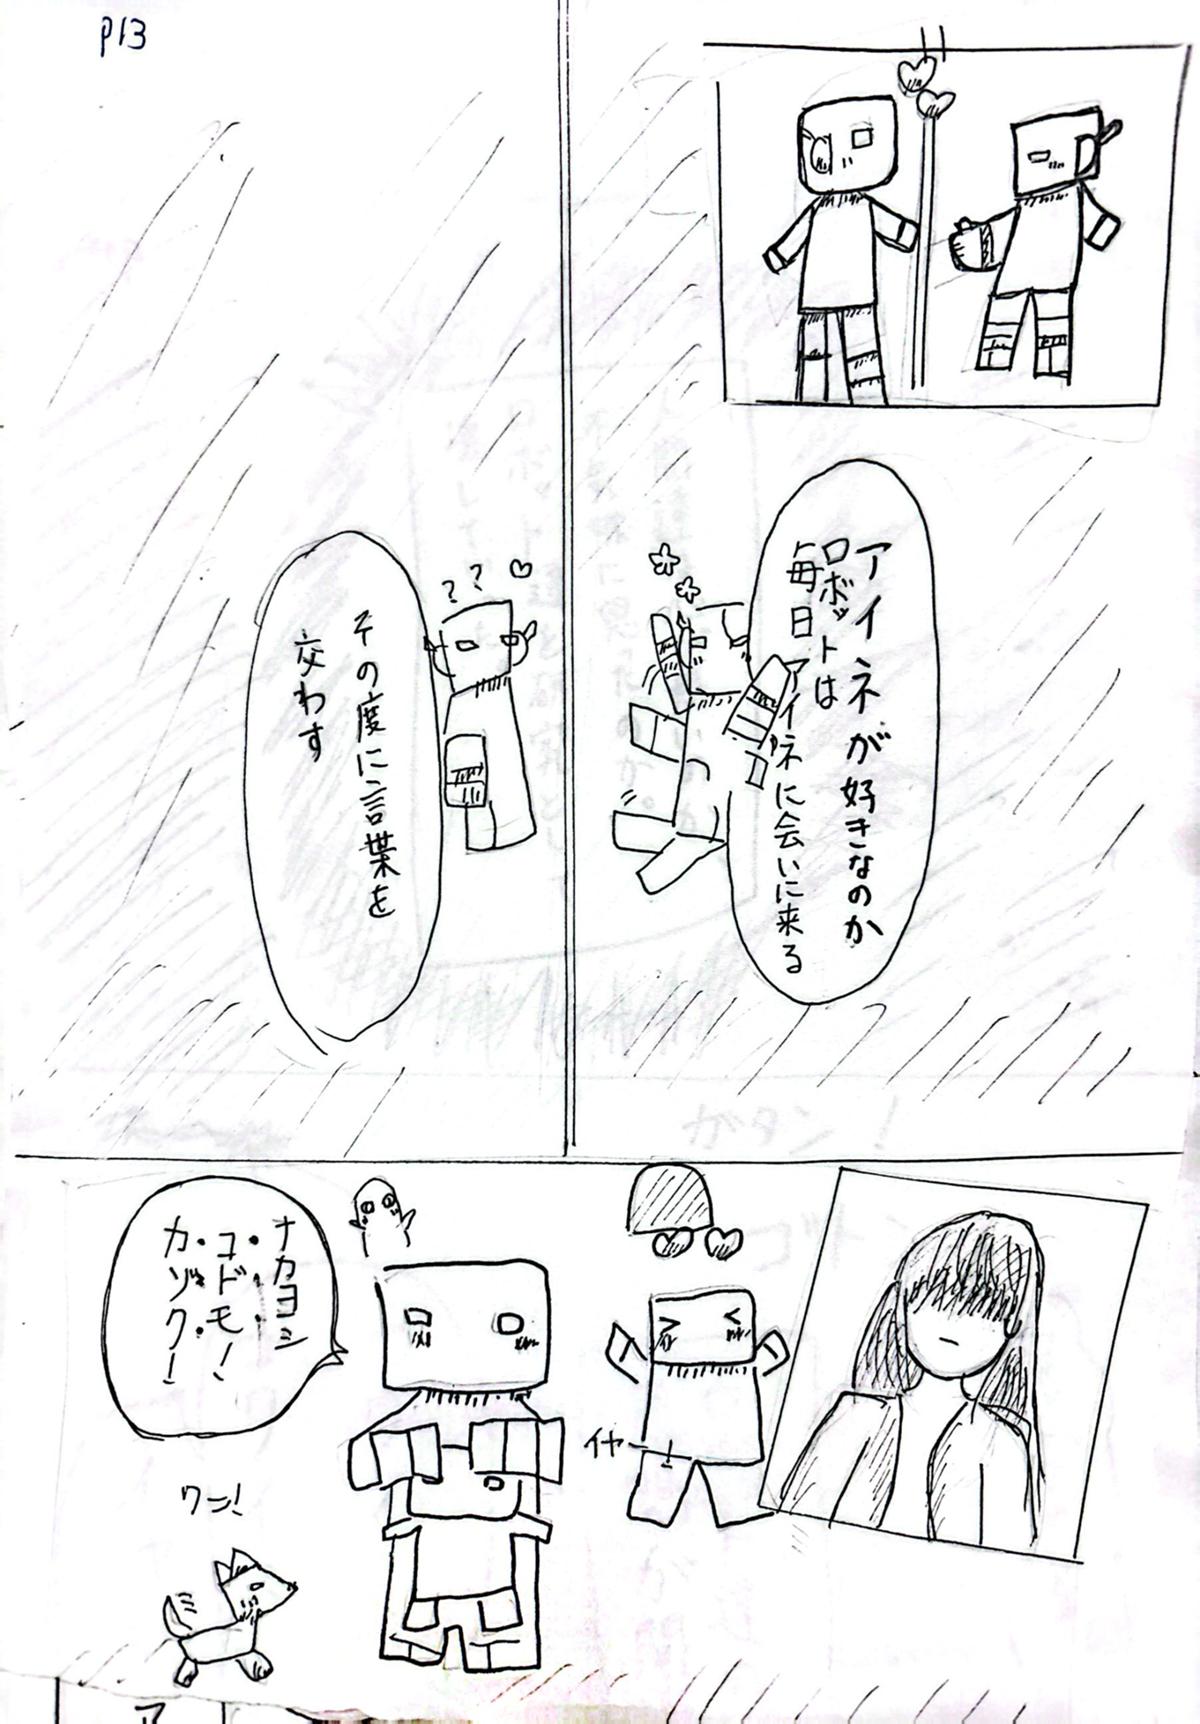 P13
アイネが好きなのか
ロボットは
毎日アイネに会いに来る
？？
その度に言葉を
交わす
イヤー！
ナカヨシ
・コドモ！
カ・ゾク！
ワン！
ア